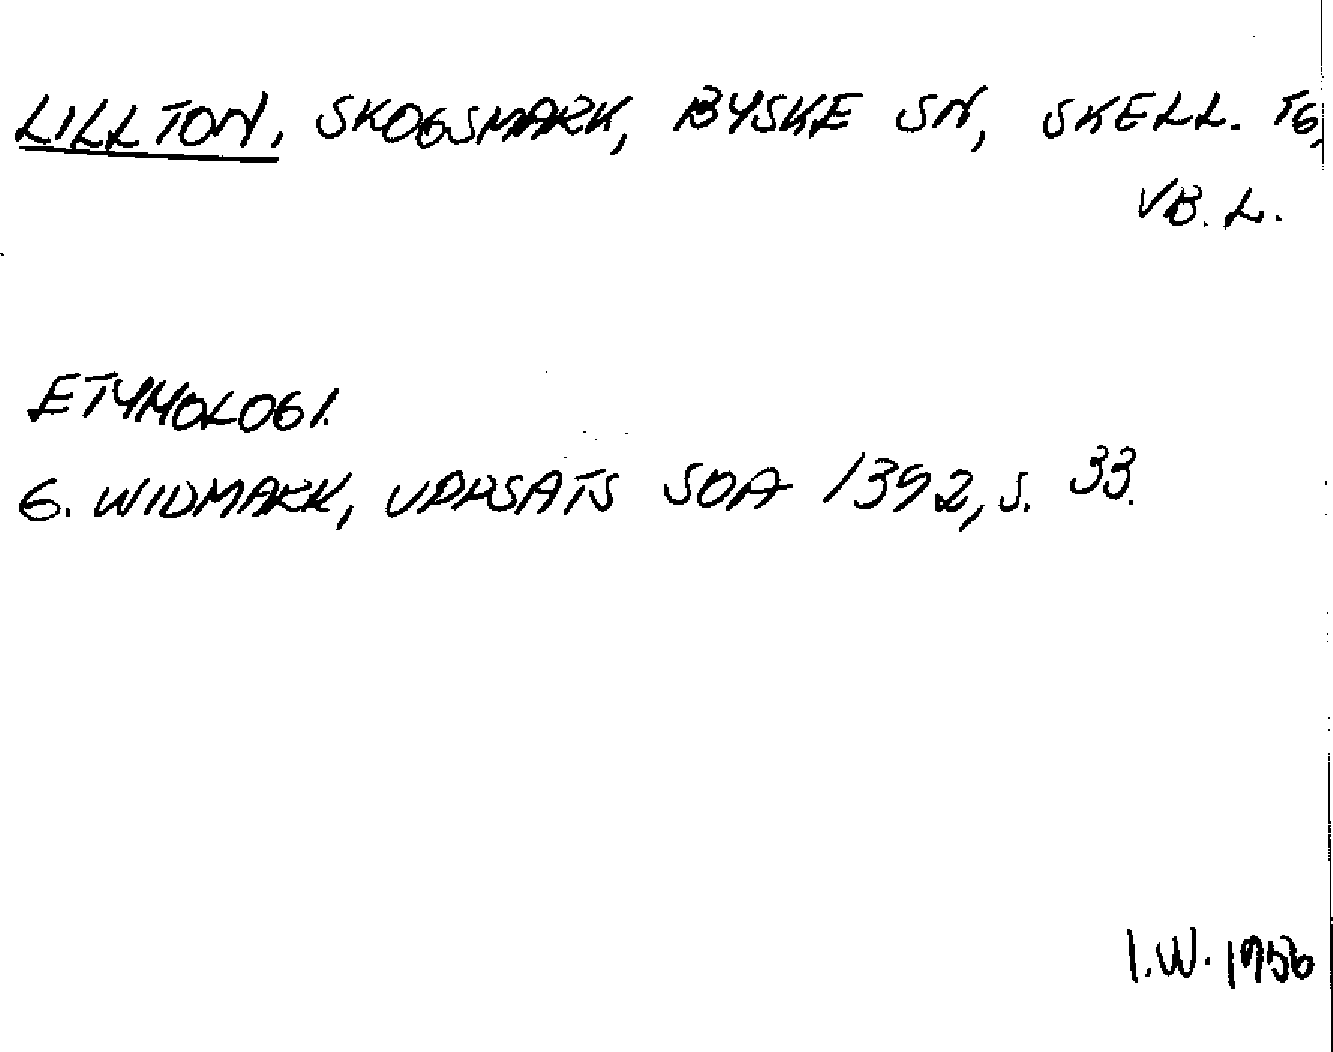 LILLTON, SKOGSMARK, BYSKE SN, SKELL. TG,
VB. L.
ETYMOLOGI.
G. WIDMARK, UPPSATS SOA 1392, S. 33.
I.W. 1956